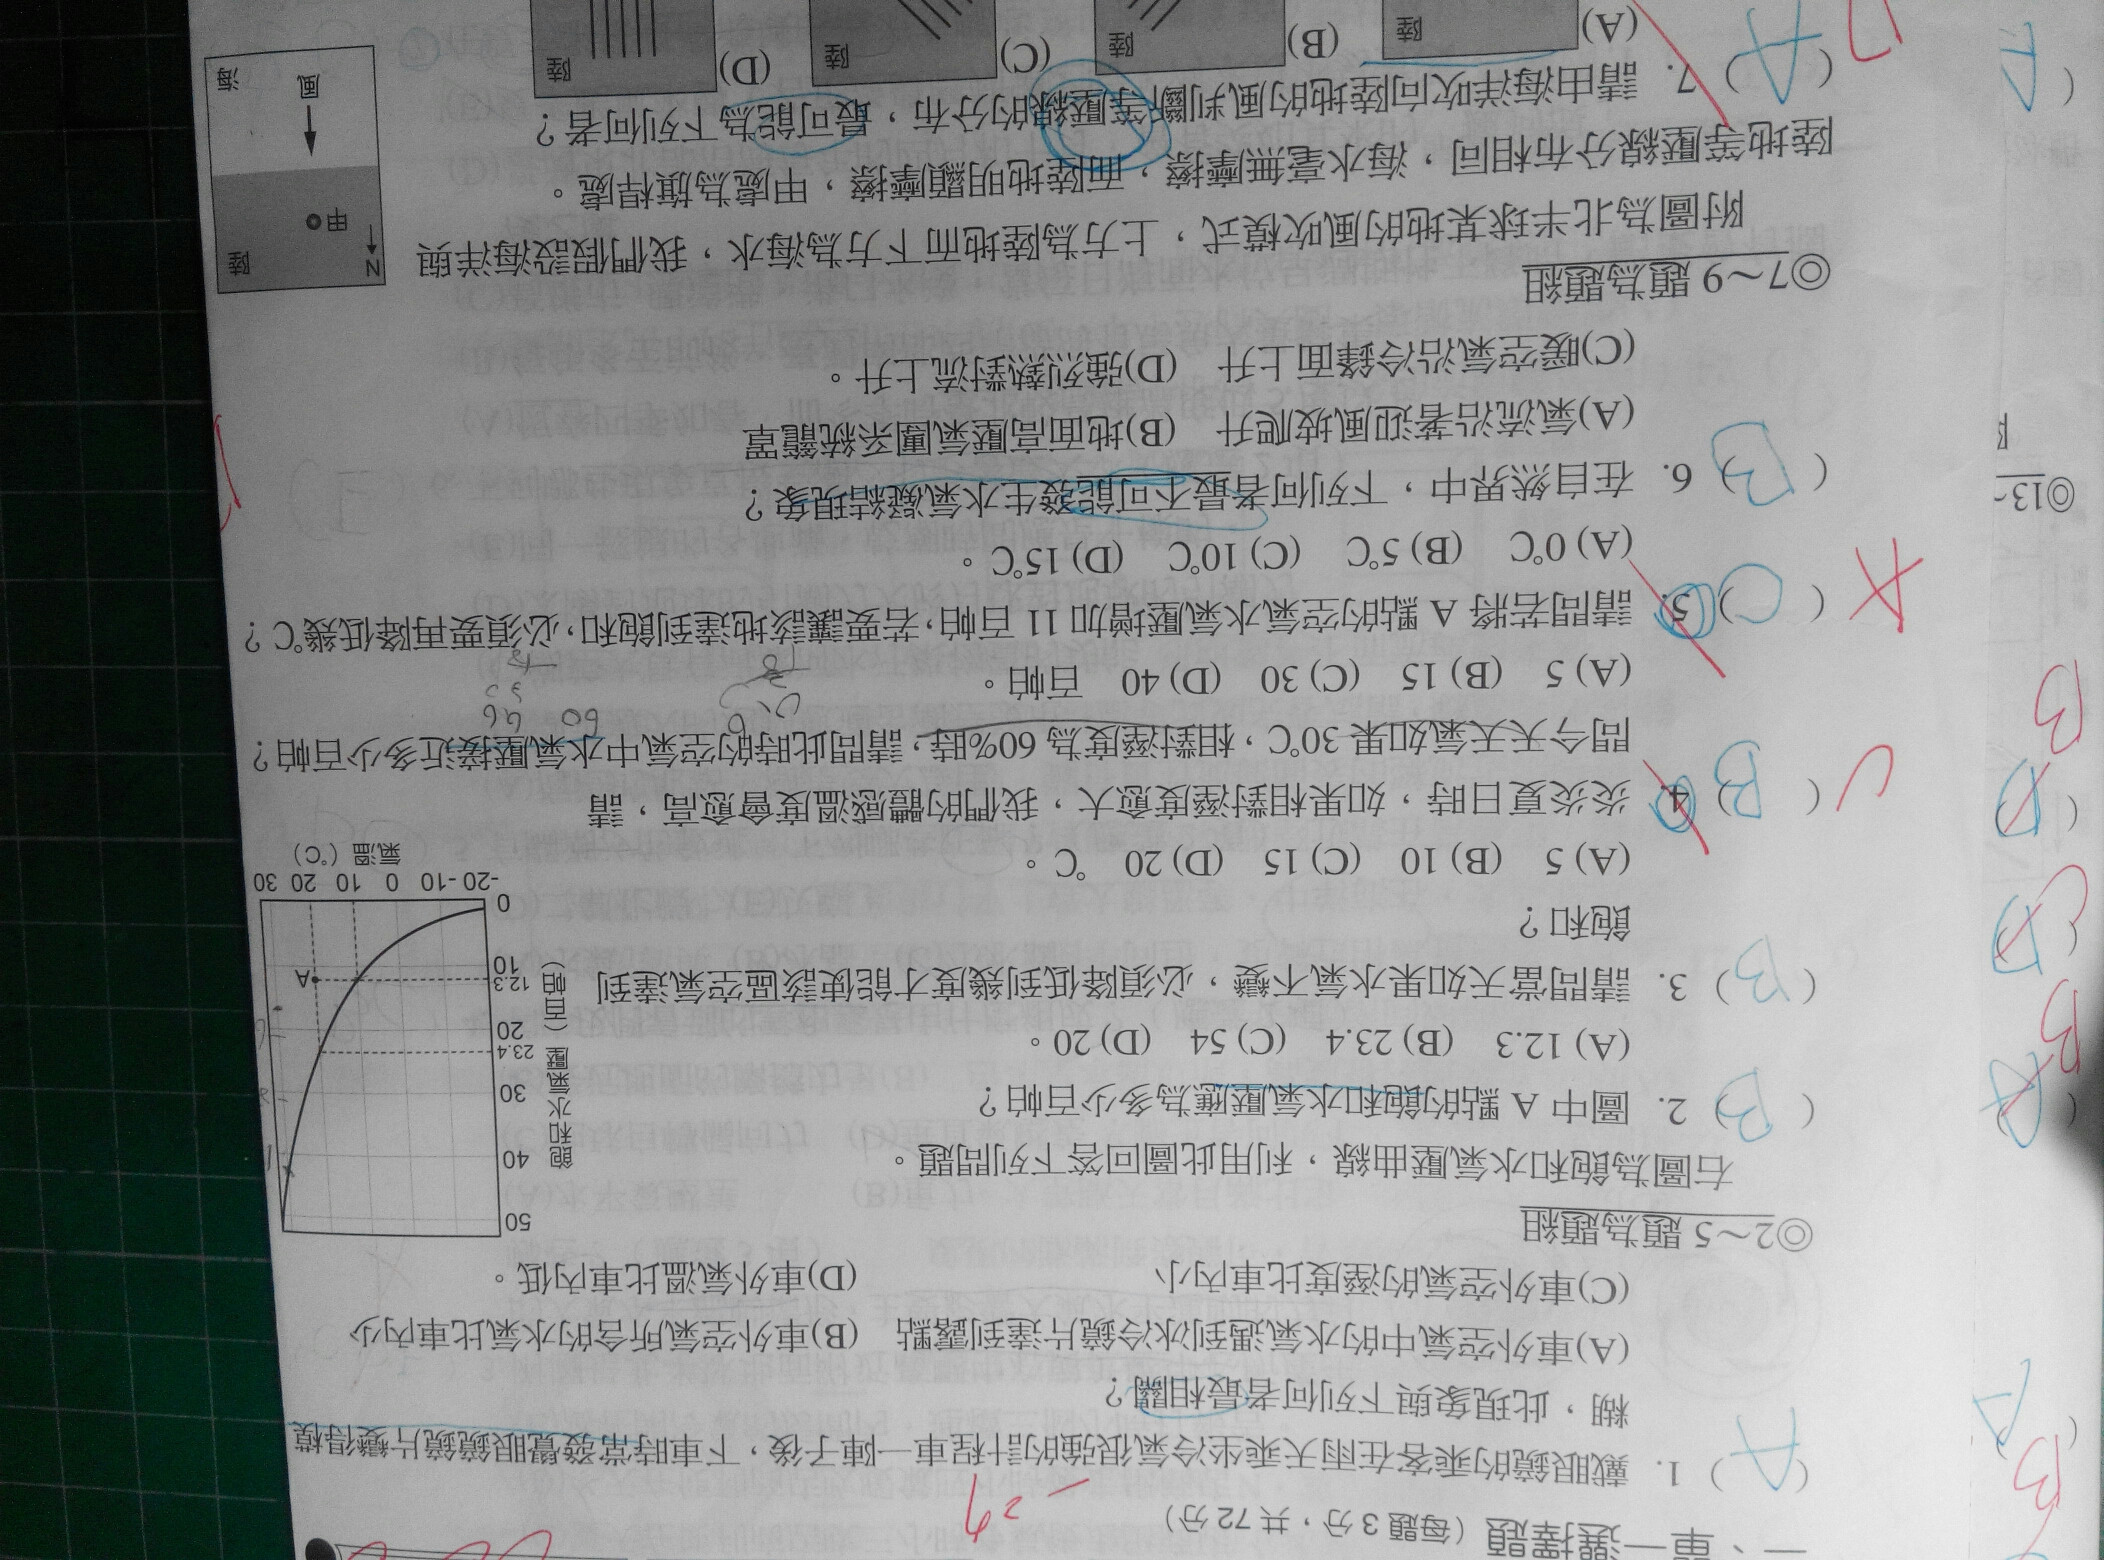 一、單一選擇題（每題 3 分，共 72 分）
-2=9
( A ) 1. 戴眼鏡的乘客在雨天乘坐冷氣很強的計程車一陣子後，下車時常發覺眼鏡鏡片變得模
糊，此現象與下列何者最相關？
(A)車外空氣中的水氣遇到冰冷鏡片達到露點 (B)車外空氣所含的水氣比車內少
(C)車外空氣的溼度比車內小 (D)車外氣溫比車內低。
◎2～5 題為題組
右圖為飽和水氣壓曲線，利用此圖回答下列問題。
( B ) 2. 圖中 A 點的飽和水氣壓應為多少百帕？
(A) 12.3 (B) 23.4 (C) 54 (D) 20。
( B ) 3. 請問當天如果水氣不變，必須降低到幾度才能使該區空氣達到
飽和？
(A) 5 (B) 10 (C) 15 (D) 20 ℃。
飽和水氣壓（百帕）
50
40
30
23.4
20
12.3
10
0
A
-20 -10 0 10 20 30
氣溫（℃）
( B ) 4. 炎炎夏日時，如果相對溼度愈大，我們的體感溫度會愈高，請
問今天天氣如果 30℃，相對溼度為 60%時，請問此時的空氣中水氣壓接近多少百帕？
(A) 5 (B) 15 (C) 30 (D) 40 百帕。
( C ) 5. 請問若將 A 點的空氣水氣壓增加 11 百帕，若要讓該地達到飽和，必須要再降低幾℃？
A
(A) 0℃ (B) 5℃ (C) 10℃ (D) 15℃。
( B ) 6. 在自然界中，下列何者最不可能發生水氣凝結現象？
(A)氣流沿著迎風坡爬升 (B)地面高壓氣團系統籠罩
(C)暖空氣沿冷鋒面上升 (D)強烈熱對流上升。
◎7～9 題為題組
附圖為北半球某地的風吹模式，上方為陸地而下方為海水，我們假設海洋與
陸地等壓線分布相同，海水毫無摩擦，而陸地明顯摩擦，甲處為旗桿處。
N
陸
甲
風
海
( A ) 7. 請由海洋吹向陸地的風判斷等壓線的分布，最可能為下列何者？
(A) 陸 (B) 陸 (C) 陸 (D) 陸
◎13~